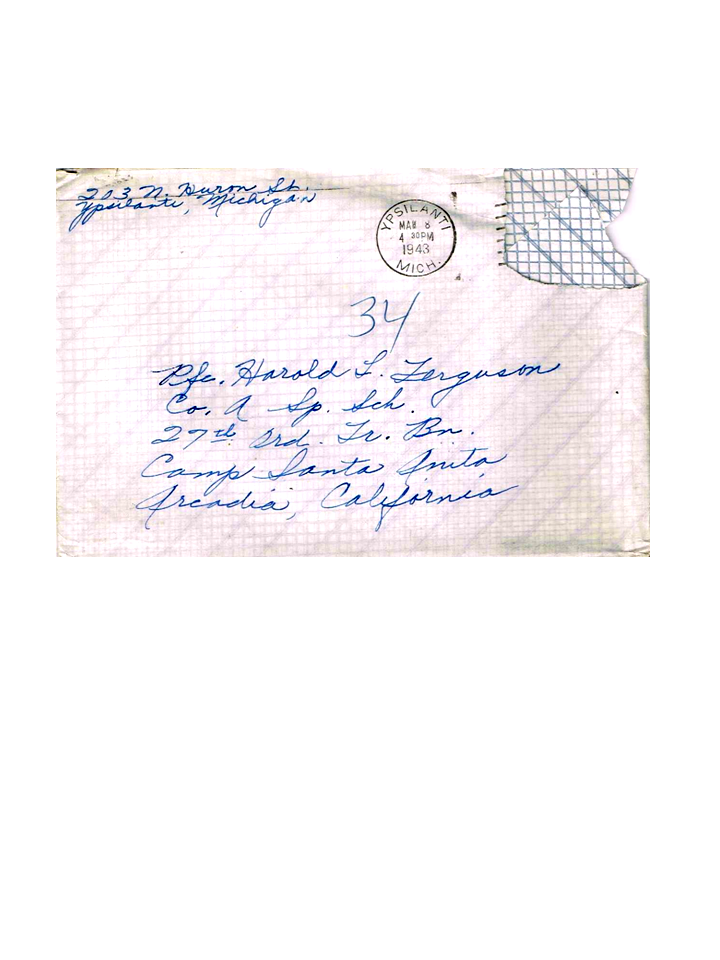 203 N. Huron St.
Ypsilanti, Michigan
YPSILANTI
MAR 8
4 30PM
1943
MICH.
34
Pfc. Harold L. Ferguson
Co. A Sp. Sch.
27th Ord. Tr. Bn.
Camp Santa Anita
Arcadia, California